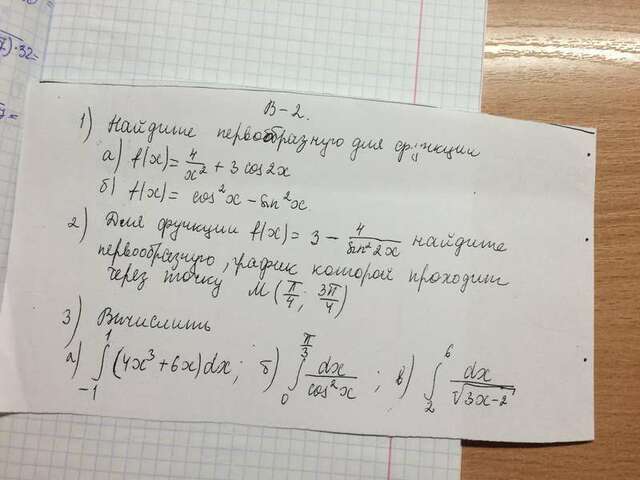 7)·32=
В-2.
1) Найдите первообразную для функции
а) f(x) = 4/x² + 3 cos2x
б) f(x) = cos²x - sin²x
2) Для функции f(x) = 3 - 4/sin²2x найдите
первообразную, график которой проходит
через точку M (π/4; 3π/4)
3) Вычислить
а) ∫₋₁¹ (4x³ + 6x)dx; б) ∫₀^(π/3) dx/cos²x; в) ∫₂⁶ dx/√(3x-2)